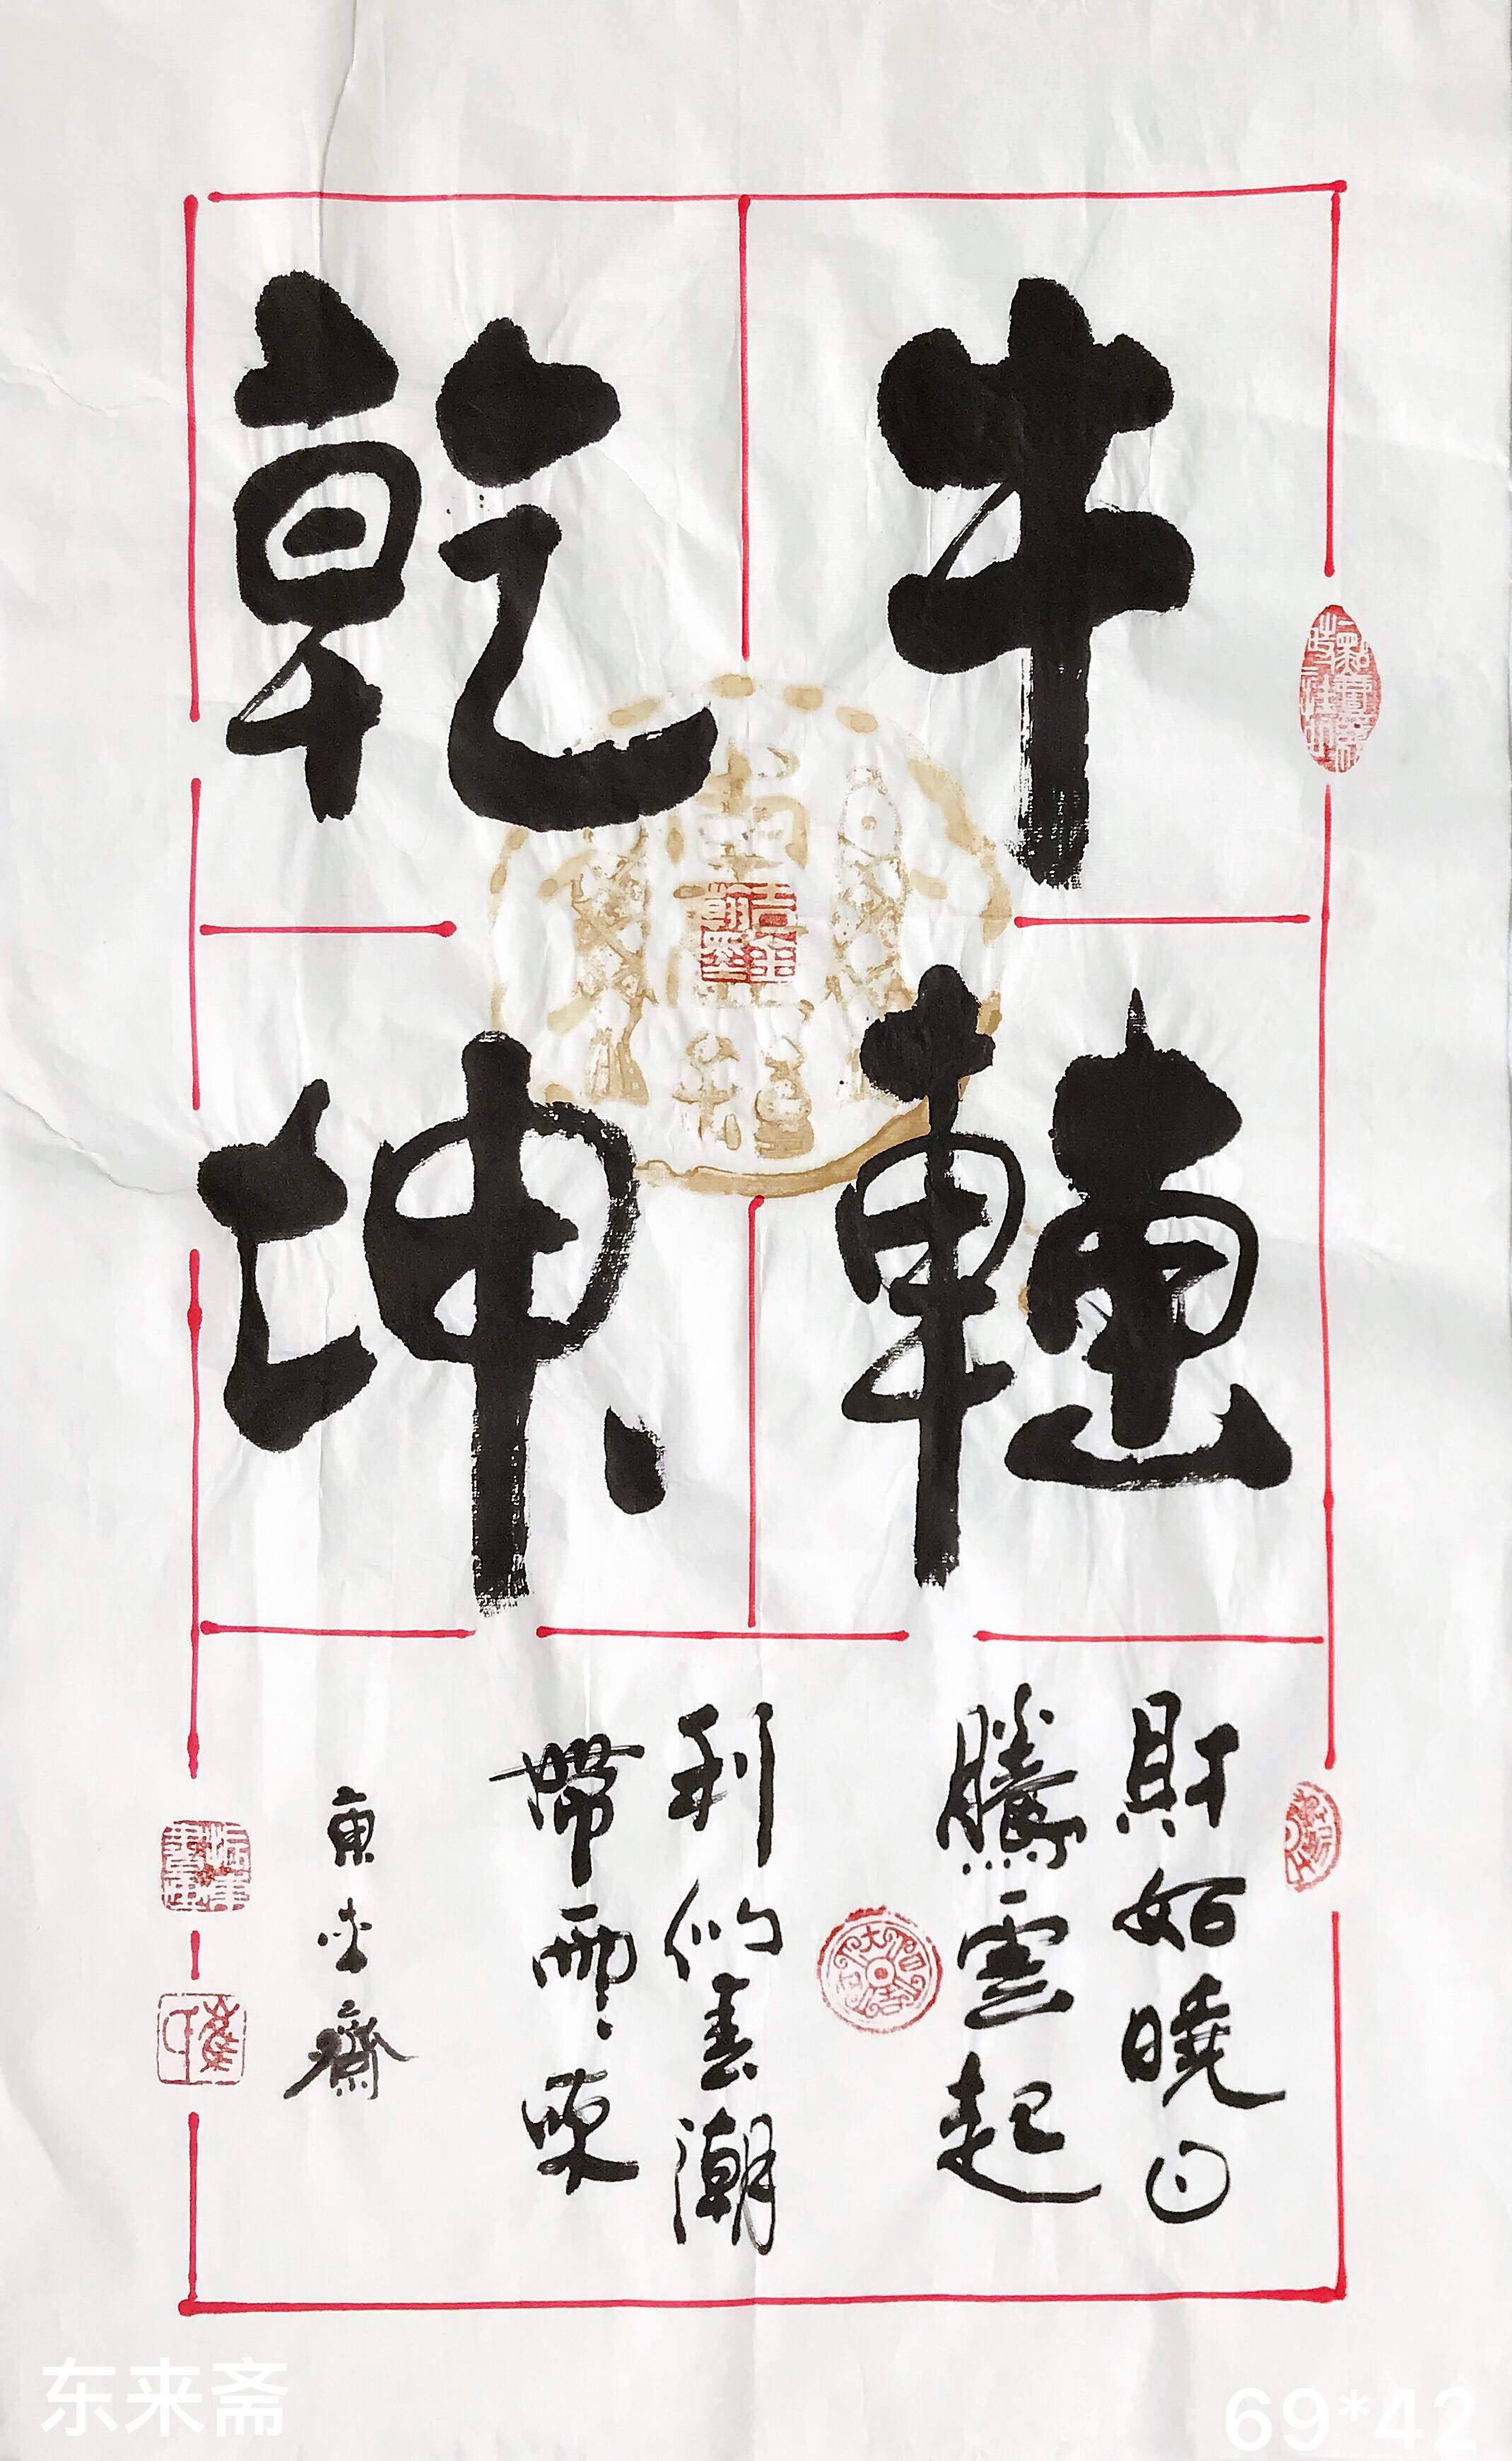 牛轉
乾坤
財如曉日
騰雲起
利似春潮
帶雨來
東来齋
东来斋
69*42